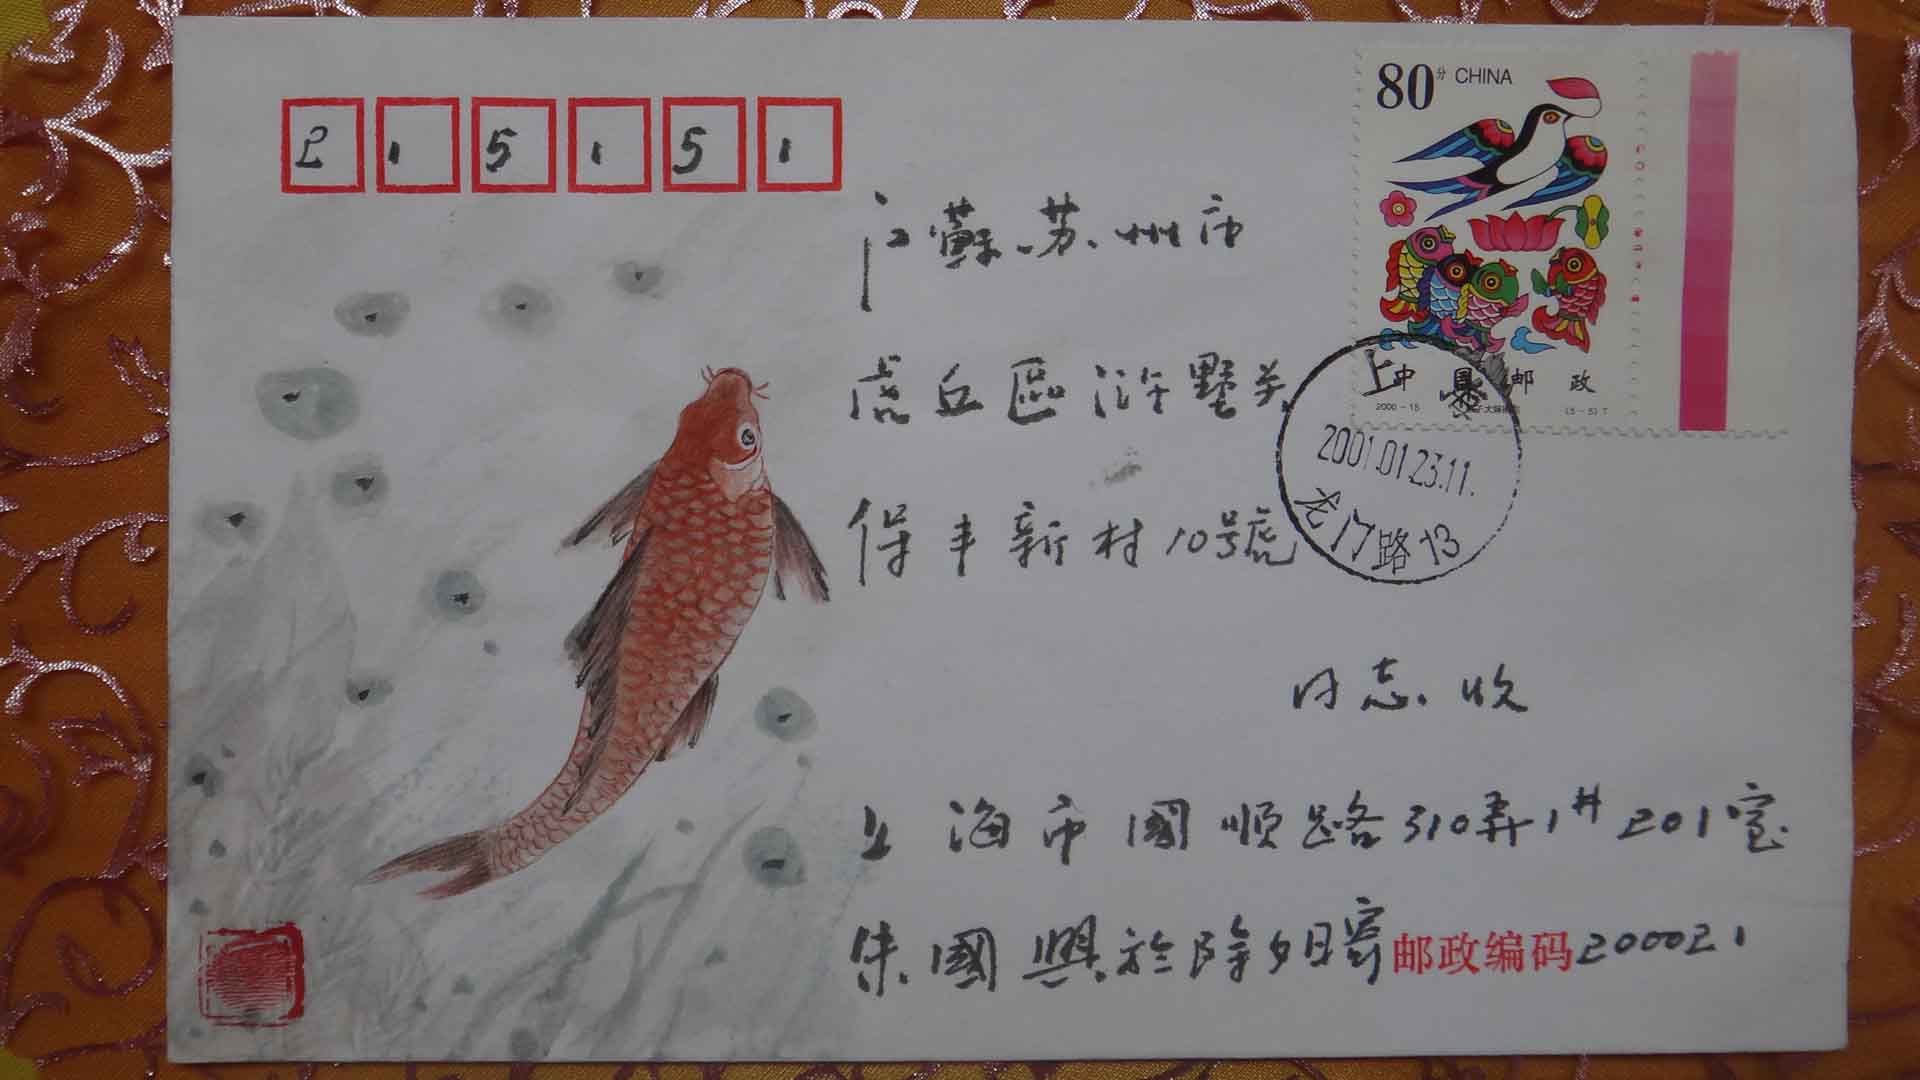 215151
80分 CHINA
江蘇.苏州市
虎丘區浒墅关
中国邮政
2000-15
(5-5)T
上海
2001.01.23.11.
龙门路13
保丰新村10号虎
同志.收
上海市國顺路310弄1#201室
朱國興於除夕日寄 邮政编码200021